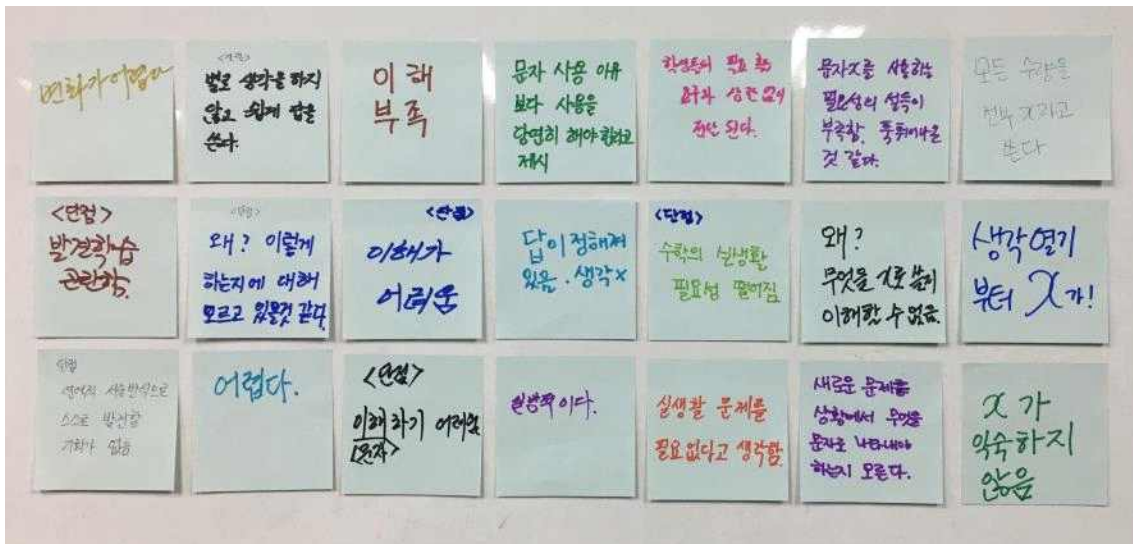 변화가 어렵다
<단점>
별로 생각을 하지
않고 쉽게 답을
쓴다.
이해
부족
문자 사용 이유
보다 사용을
당연히 해야 한다고
제시
학생들의 필요
요구와 상관 없이
진단 된다.
문자 x를 사용하는
필요성의 설득이
부족함. 툭 튀어나온
것 같다.
모든 수량을
전부 x라고
쓴다
<단점>
발견학습
곤란함.
<단점>
왜? 이렇게
하는지에 대해
모르고 있을것 같다.
<단점>
이해가
어려움
답이 정해져
있음. 생각x
<단점>
수학의 실생활
필요성 떨어짐
왜?
무엇을 x로 쓸지
이해할 수 없음.
생각열기
부터 x가!
단점
연역적 서술방식으로
스스로 발견할
기회가 없음
어렵다.
<단점>
이해하기 어려움
<문자>
일방적이다.
실생활 문제를
필요없다고 생각함.
새로운 문제를
상황에서 무엇을
문자로 나타내야
하는지 모른다.
x가
익숙하지
않음